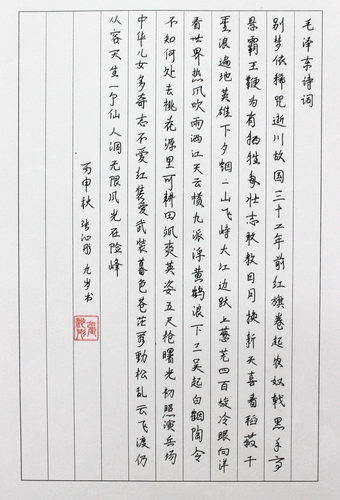 毛泽东诗词
别梦依稀咒逝川故国三十二年前红旗卷起农奴戟黑手高
悬霸王鞭为有牺牲多壮志敢教日月换新天喜看稻菽千
重浪遍地英雄下夕烟一山飞峙大江边跃上葱茏四百旋冷眼向洋
看世界热风吹雨洒江天云横九派浮黄鹤浪下三吴起白烟陶令
不知何处去桃花源里可耕田飒爽英姿五尺枪曙光初照演兵场
中华儿女多奇志不爱红装爱武装暮色苍茫看劲松乱云飞渡仍
从容天生一个仙人洞无限风光在险峰
丙申秋 张沁彤 九岁书